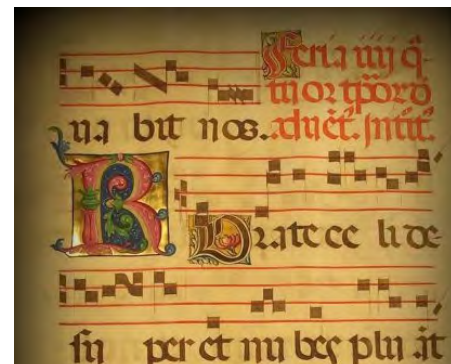 Feria iiij q̄
tuor
na bit nos. Intit.
ROrate ce li de-
su per et nu bes plu āt